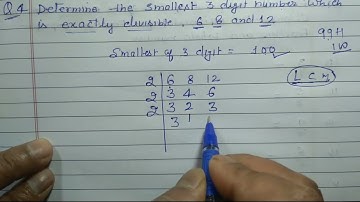 Q4 Determine the smallest 3 digit number which
is exactly divisible, 6, 8 and 12
Smallest of 3 digit = 100
99+1
100
LCM
2 6 8 12
2 3 4 6
2 3 2 3
3 1